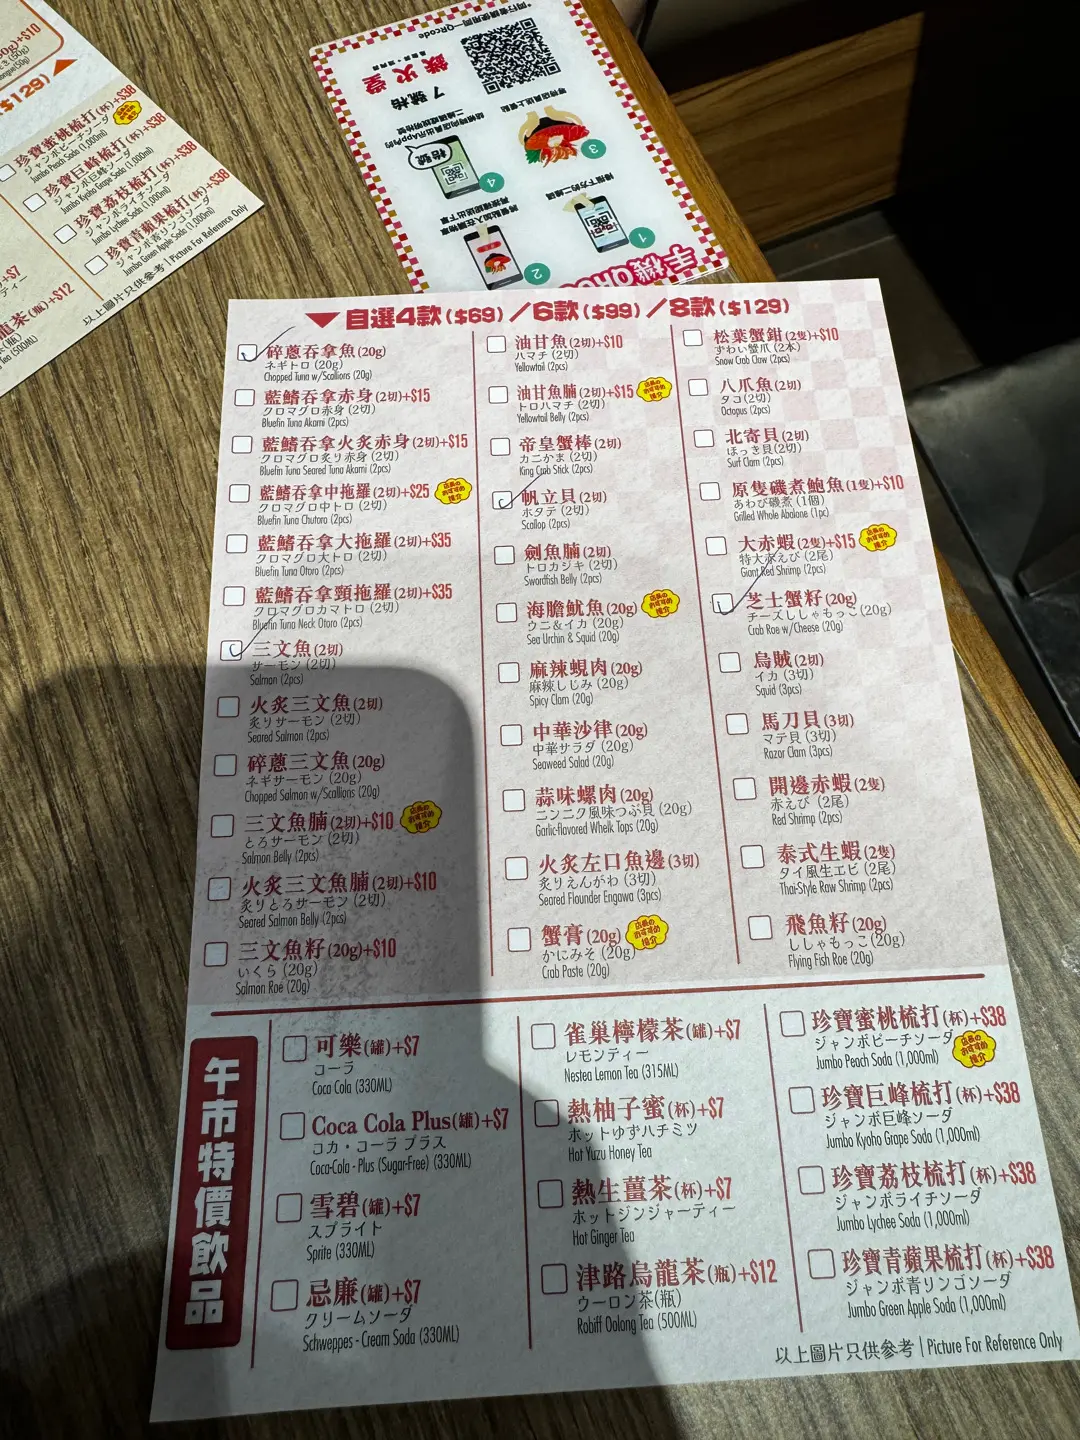 0g)+$10
き(50g)
ongue(50g)
$129)
珍寶蜜桃梳打(杯)+$38
ジャンボピーチソーダ
Jumbo Peach Soda (1,000ml)
珍寶巨峰梳打(杯)+$38
ジャンボ巨峰ソーダ
Jumbo Kyoho Grape Soda (1,000ml)
珍寶荔枝梳打(杯)+$38
ジャンボライチソーダ
Jumbo Lychee Soda (1,000ml)
珍寶青蘋果梳打(杯)+$38
ジャンボ青リンゴソーダ
Jumbo Green Apple Soda (1,000ml)
以上圖片只供參考 | Picture For Reference Only
+$7
ティー
龍茶(瓶)+$12
茶(瓶)
Tea (500ML)
*同行者請使用同一QRcode
鐵火堂
7號枱
等待店員送上餐點
枱號
3
4
掃描下方的二維碼
1
2
手機
自選4款($69)／6款($99)／8款($129)
碎蔥吞拿魚(20g)
ネギトロ (20g)
Chopped Tuna w/Scallions (20g)
藍鰭吞拿赤身(2切)+$15
クロマグロ赤身 (2切)
Bluefin Tuna Akami (2pcs)
藍鰭吞拿火炙赤身(2切)+$15
クロマグロ炙り赤身 (2切)
Bluefin Tuna Seared Tuna Akami (2pcs)
藍鰭吞拿中拖羅(2切)+$25
店長の
おすすめ
推介
クロマグロ中トロ (2切)
Bluefin Tuna Chutoro (2pcs)
藍鰭吞拿大拖羅(2切)+$35
クロマグロ大トロ (2切)
Bluefin Tuna Otoro (2pcs)
藍鰭吞拿頸拖羅(2切)+$35
クロマグロカマトロ (2切)
Bluefin Tuna Neck Otoro (2pcs)
三文魚(2切)
サーモン (2切)
Salmon (2pcs)
火炙三文魚(2切)
炙りサーモン (2切)
Seared Salmon (2pcs)
碎蔥三文魚(20g)
ネギサーモン (20g)
Chopped Salmon w/Scallions (20g)
三文魚腩(2切)+$10
店長の
おすすめ
推介
とろサーモン (2切)
Salmon Belly (2pcs)
火炙三文魚腩(2切)+$10
炙りとろサーモン (2切)
Seared Salmon Belly (2pcs)
三文魚籽(20g)+$10
いくら (20g)
Salmon Roe (20g)
油甘魚(2切)+$10
ハマチ (2切)
Yellowtail (2pcs)
油甘魚腩(2切)+$15
店長の
おすすめ
推介
トロハマチ (2切)
Yellowtail Belly (2pcs)
帝皇蟹棒(2切)
カニかま (2切)
King Crab Stick (2pcs)
帆立貝(2切)
ホタテ (2切)
Scallop (2pcs)
劍魚腩(2切)
トロカジキ (2切)
Swordfish Belly (2pcs)
海膽魷魚(20g)
店長の
おすすめ
推介
ウニ&イカ (20g)
Sea Urchin & Squid (20g)
麻辣蜆肉(20g)
麻辣しじみ (20g)
Spicy Clam (20g)
中華沙律(20g)
中華サラダ (20g)
Seaweed Salad (20g)
蒜味螺肉(20g)
ニンニク風味つぶ貝 (20g)
Garlic-flavored Whelk Tops (20g)
火炙左口魚邊(3切)
炙りえんがわ (3切)
Seared Flounder Engawa (3pcs)
蟹膏(20g)
店長の
おすすめ
推介
かにみそ (20g)
Crab Paste (20g)
松葉蟹鉗(2隻)+$10
ずわい蟹爪 (2本)
Snow Crab Claw (2pcs)
八爪魚(2切)
タコ(2切)
Octopus (2pcs)
北寄貝(2切)
ほっき貝(2切)
Surf Clam (2pcs)
原隻磯煮鮑魚(1隻)+$10
あわび磯煮 (1個)
Grilled Whole Abalone (1pc)
大赤蝦(2隻)+$15
店長の
おすすめ
推介
特大赤えび (2尾)
Giant Red Shrimp (2pcs)
芝士蟹籽(20g)
チーズししゃもっこ (20g)
Crab Roe w/Cheese (20g)
烏賊(2切)
イカ (3切)
Squid (3pcs)
馬刀貝(3切)
マテ貝 (3切)
Razor Clam (3pcs)
開邊赤蝦(2隻)
赤えび (2尾)
Red Shrimp (2pcs)
泰式生蝦(2隻)
タイ風生エビ (2尾)
Thai-Style Raw Shrimp (2pcs)
飛魚籽(20g)
ししゃもっこ(20g)
Flying Fish Roe (20g)
午市特價飲品
可樂(罐)+$7
コーラ
Coca Cola (330ML)
Coca Cola Plus(罐)+$7
コカ・コーラ プラス
Coca-Cola - Plus (Sugar-Free) (330ML)
雪碧(罐)+$7
スプライト
Sprite (330ML)
忌廉(罐)+$7
クリームソーダ
Schweppes - Cream Soda (330ML)
雀巢檸檬茶(罐)+$7
レモンティー
Nestea Lemon Tea (315ML)
熱柚子蜜(杯)+$7
ホットゆずハチミツ
Hot Yuzu Honey Tea
熱生薑茶(杯)+$7
ホットジンジャーティー
Hot Ginger Tea
津路烏龍茶(瓶)+$12
ウーロン茶(瓶)
Robiff Oolong Tea (500ML)
珍寶蜜桃梳打(杯)+$38
ジャンボピーチソーダ
Jumbo Peach Soda (1,000ml)
店長の
おすすめ
推介
珍寶巨峰梳打(杯)+$38
ジャンボ巨峰ソーダ
Jumbo Kyoho Grape Soda (1,000ml)
珍寶荔枝梳打(杯)+$38
ジャンボライチソーダ
Jumbo Lychee Soda (1,000ml)
珍寶青蘋果梳打(杯)+$38
ジャンボ青リンゴソーダ
Jumbo Green Apple Soda (1,000ml)
以上圖片只供參考 | Picture For Reference Only